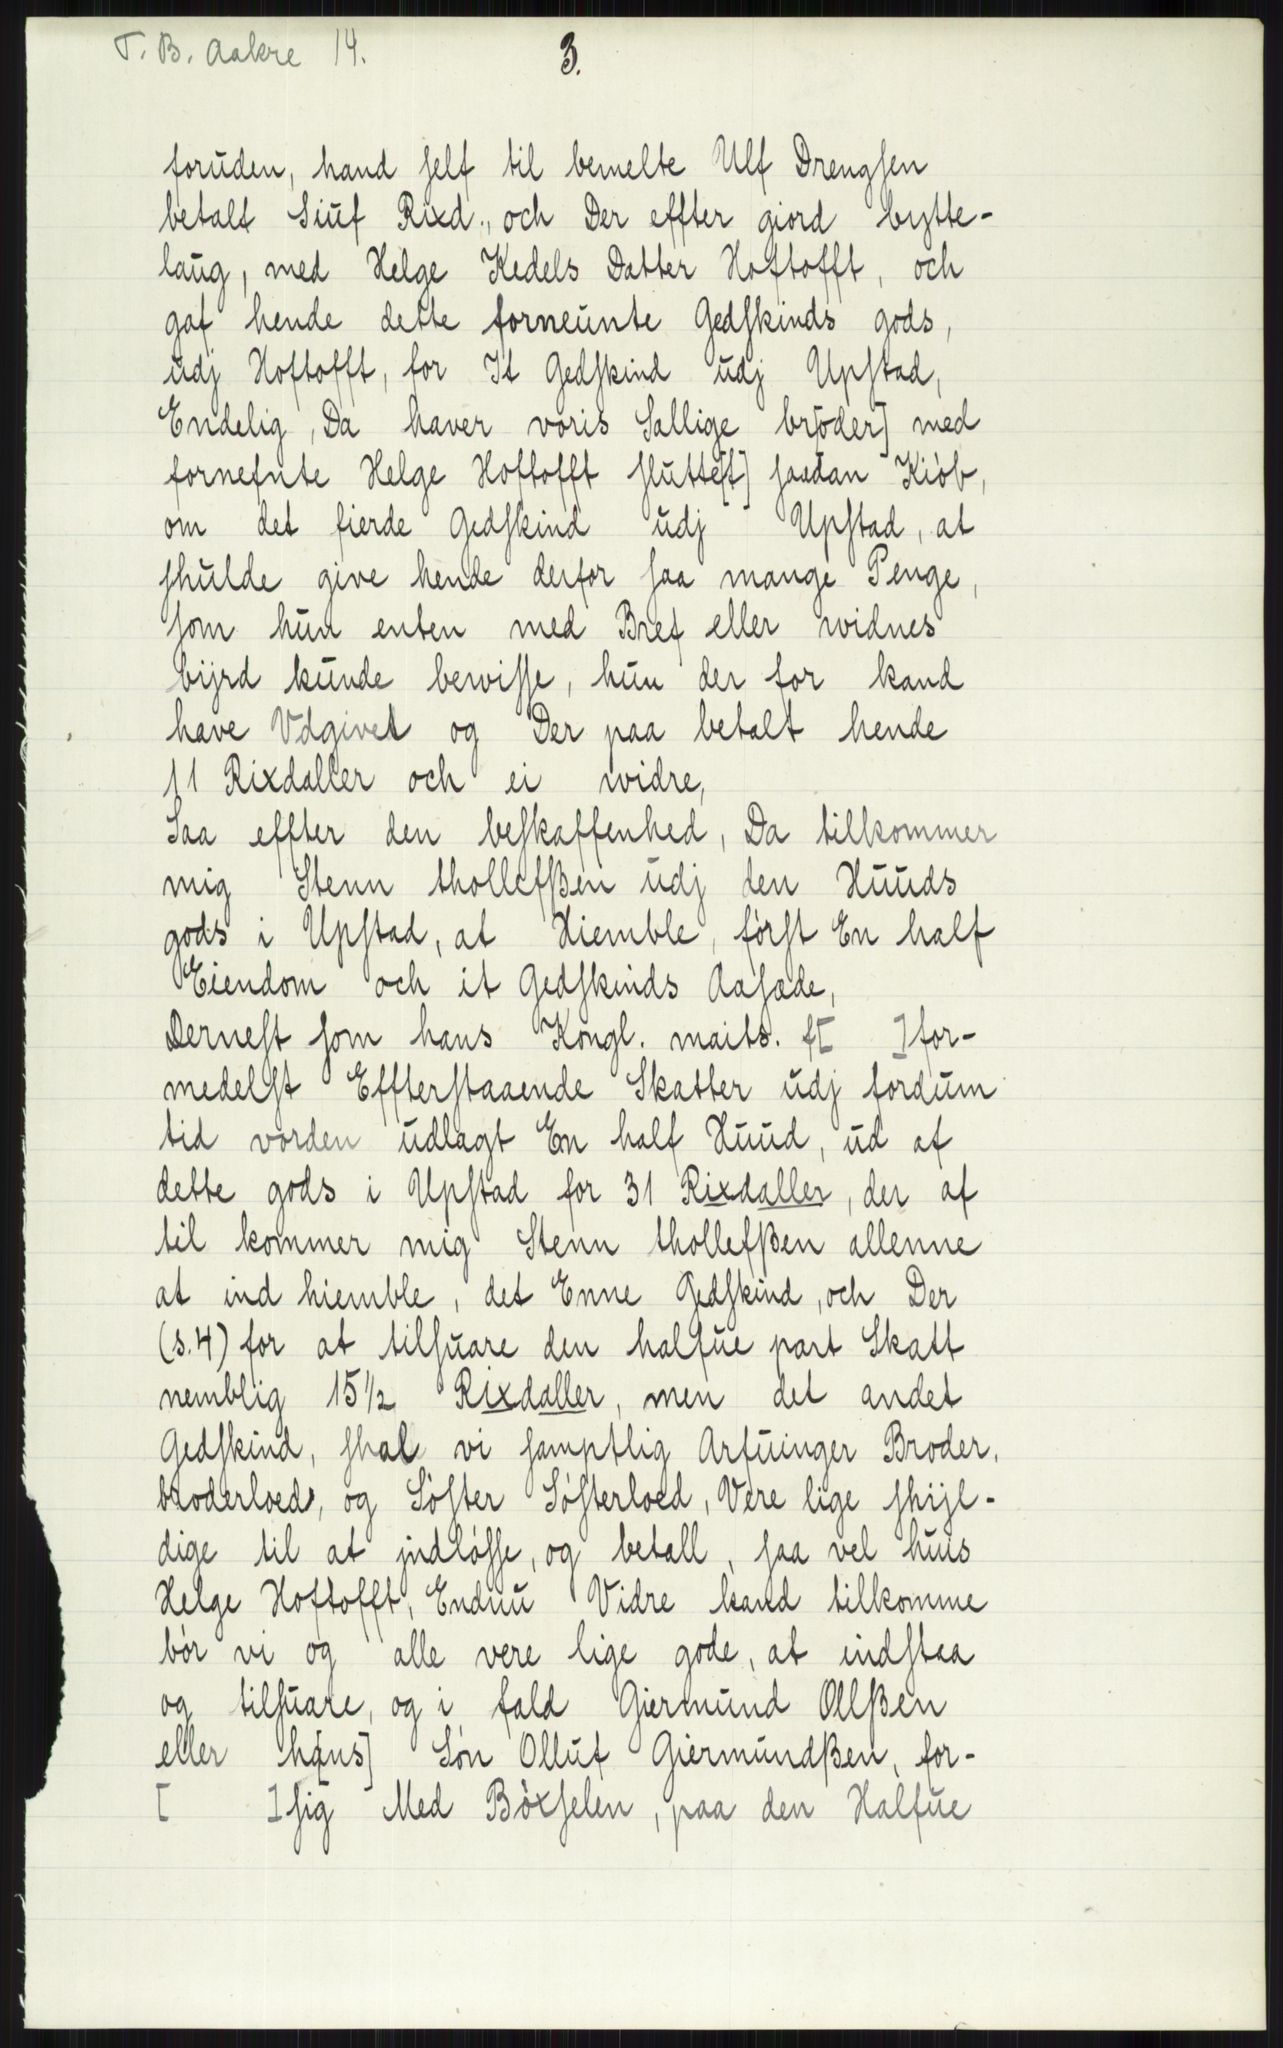 T. B. Aakre 14.
3.
foruden, hand self til bemelte Ulf Drengsen
betalt Siuf Rixd., och Der effter giord bytte-
laug, med Helge Kedels Datter Hoftofft, och
gaf hende dette forneunte Gedskinds gods,
udj Hoftofft, for It Gedskind udj Upstad,
Endelig, Da haver voris Sallige br[oder] med
fornefnte Helge Hoftofft slutte[t] saadan Kiób,
om det fierde Gedskind udj Upstad, at
skulde give hende derfor saa mange Penge,
som hun enten med Bref eller widnes
bijrd kunde bewisse, hun der for kand
have Vdgivet og Der paa betalt hende
11 Rixdaller och ei widre,
Saa effter den beskaffenhed, Da tilkommer
mig Stenn thollefßen udj den Huuds
gods i Upstad, at Hiemble, fórst En half
Eiendom och it Gedskinds Aasæde,
Dernest som hans Kongl. maits. f[ ]for-
medelst Effterstaaende Skatter udj fordum
tid vorden udlagt En half Huud, ud af
dette gods i Upstad for 31 Rixdaller, der af
til kommer mig Stenn thollefßen allenne
at ind hiemble, det Enne Gedskind, och Der
(s.4) for at tilsuare den halfue part Skatt
nemblig 15½ Rixdaller, men det andet
Gedskind, skal vi samptlig Arfuinger Broder,
broderloed, og Sóster Sósterloed, Vere lige skijl-
dige til at jndlósse, og betall, saa vel huis
Helge Hoftofft, Endnu Vidre kand tilkomme
bór vi og alle vere lige gode, at indstaa
og tilsuare, og i fald Giermund Ollßen
eller h[ans] Són Olluf Giermundßen, for-
[ ]sig Med Bóxselen, paa den Halfue